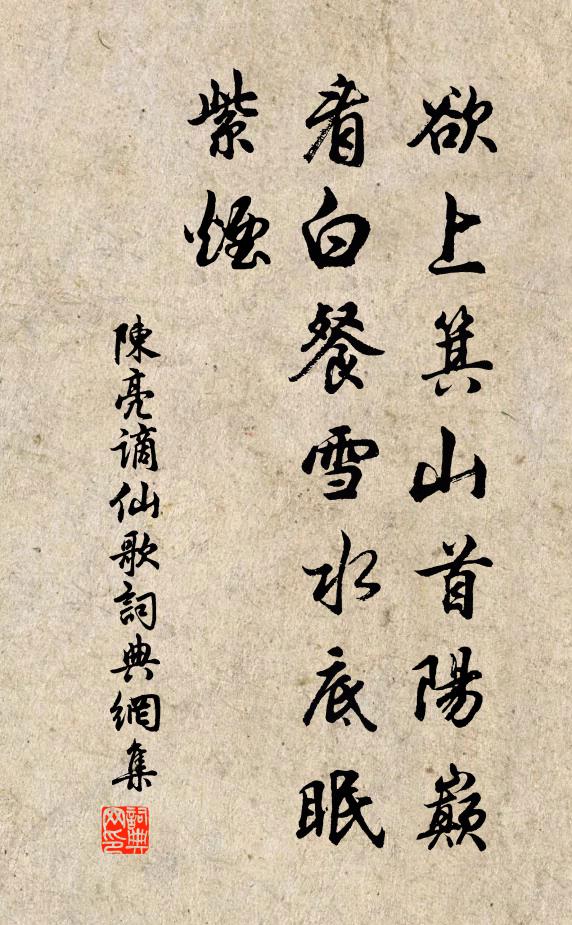 欲上箕山首陽巔
看白餐雪水底眠
紫煙
陳亮謫仙歌詞典網集
詞典網印